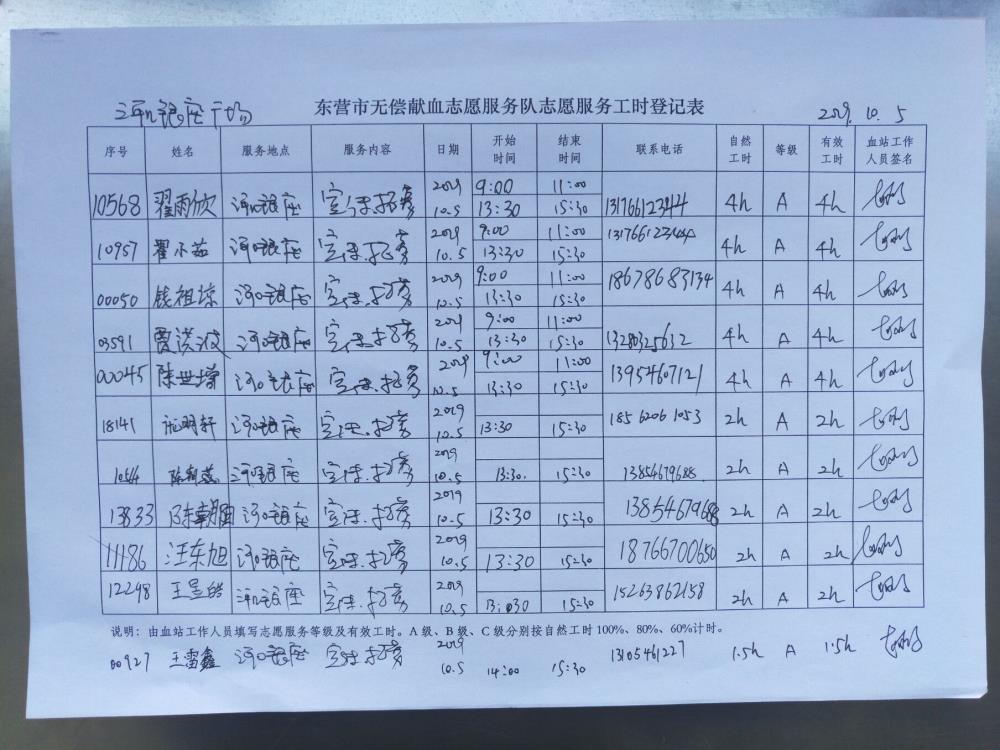 河口银座广场 东营市无偿献血志愿服务队志愿服务工时登记表 2019.10.5
序号 姓名 服务地点 服务内容 日期 开始时间 结束时间 联系电话 自然工时 等级 有效工时 血站工作人员签名
10568 翟雨欣 河口银座 宣传.招募 2019 10.5 9:00 11:00 13:30 15:30 13176612344 4h A 4h
10957 翟小茹 河口银座 宣传.招募 2019 10.5 9:00 11:00 13:30 15:30 13176612344 4h A 4h
00050 钱祖琼 河口银座 宣传.招募 2019 10.5 9:00 11:00 13:30 15:30 18678683134 4h A 4h
03591 贾洪波 河口银座 宣传.招募 2019 10.5 9:00 11:00 13:30 15:30 13280325632 4h A 4h
00045 陈世增 河口银座 宣传.招募 2019 10.5 9:00 11:00 13:30 15:30 13954607121 4h A 4h
18141 明轩 河口银座 宣传.招募 2019 10.5 13:30 15:30 185 6206 1053 2h A 2h
河口银座 宣传.招募 2019 10.5 13:30. 15:30 13854679688 2h A 2h
13833 陈朝国 河口银座 宣传.招募 2019 10.5 13:30 15:30 13854679688 2h A 2h
11186 汪东旭 河口银座 宣传.招募 2019 10.5 13:30 15:30 18766700650 2h A 2h
12298 王昱皓 河口银座 宣传.招募 2019 10.5 13:30 15:30 15263862158 2h A 2h
说明：由血站工作人员填写志愿服务等级及有效工时。A级、B级、C级分别按自然工时100%、80%、60%计时。
00927 王雷鑫 河口银座 宣传.招募 2019 10.5 14:00 15:30 13105461227 1.5h A 1.5h